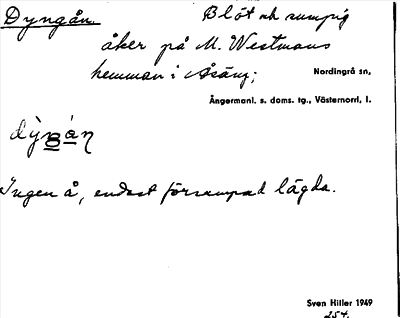 Dyngån Blöt och sumpig
åker på M. Westmans
hemman i Åsäng;
Nordingrå sn,
Ångermanl. s. doms. tg., Västernorrl. l.
Ingen å, endast försumpad lägda.
Sven Hiller 1949
254.